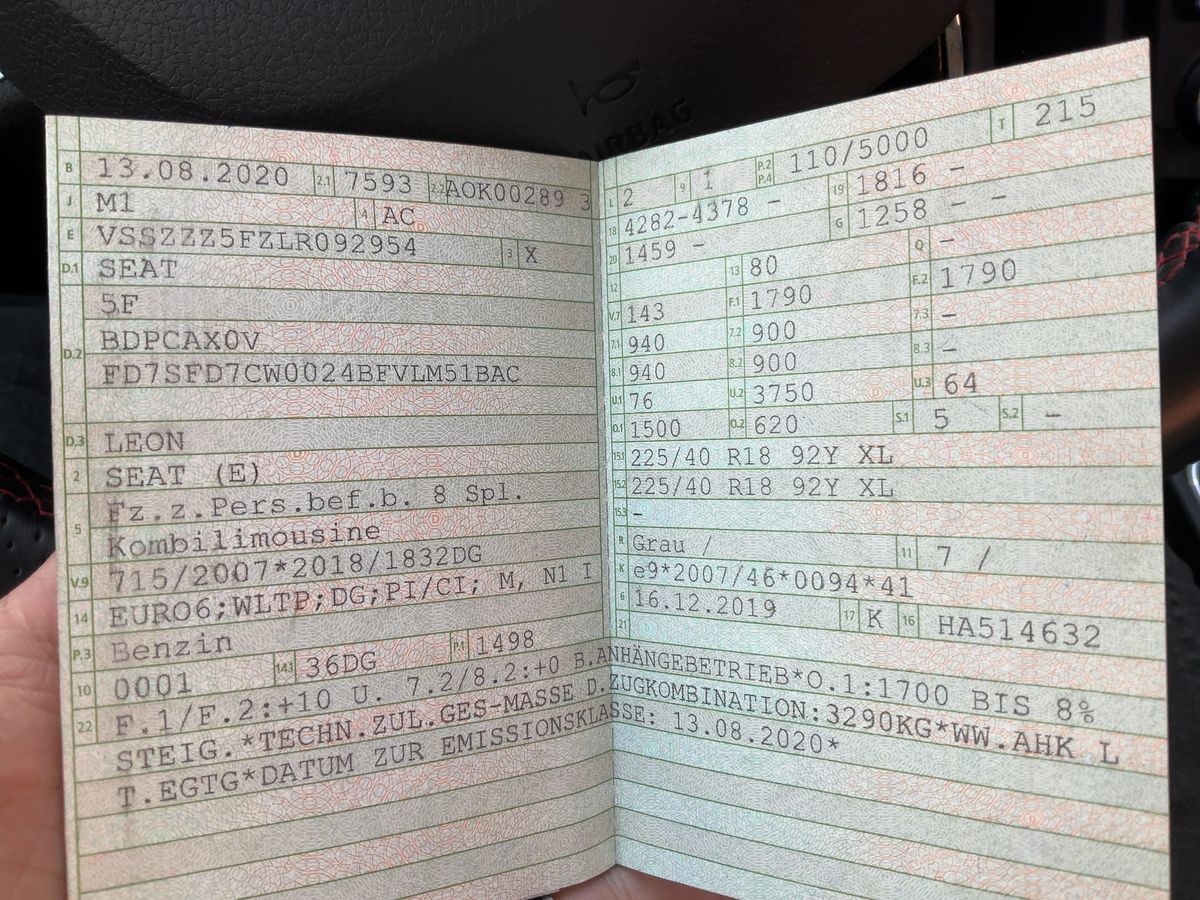 B 13.08.2020 2.1 7593 2.2 AOK00289 3
J M1 4 AC
E VSSZZZ5FZLR092954 3 X
D.1 SEAT
5F
D.2 BDPCAX0V
FD7SFD7CW0024BFVLM51BAC
D.3 LEON
2 SEAT (E)
5 Fz.z.Pers.bef.b. 8 Spl.
Kombilimousine
V.9 715/2007*2018/1832DG
14 EURO6;WLTP;DG;PI/CI; M, N1 I
P.3 Benzin P.1 1498
10 0001 14.1 36DG
L 2 9 1 P.2 P.4 110/5000 T 215
18 4282-4378 - 19 1816 -
20 1459 - G 1258 - -
12 13 80 Q -
V.7 143 F.1 1790 F.2 1790
7.1 940 7.2 900 7.3 -
8.1 940 8.2 900 8.3 -
U.1 76 U.2 3750 U.3 64
O.1 1500 O.2 620 S.1 5 S.2 -
15.1 225/40 R18 92Y XL
15.2 225/40 R18 92Y XL
15.3 -
R Grau / 11 7 /
K e9*2007/46*0094*41
6 16.12.2019 17 K 16 HA514632
21
22 F.1/F.2:+10 U. 7.2/8.2:+0 B.ANHÄNGEBETRIEB*O.1:1700 BIS 8%
STEIG.*TECHN.ZUL.GES-MASSE D.ZUGKOMBINATION:3290KG*WW.AHK L
T.EGTG*DATUM ZUR EMISSIONSKLASSE: 13.08.2020*